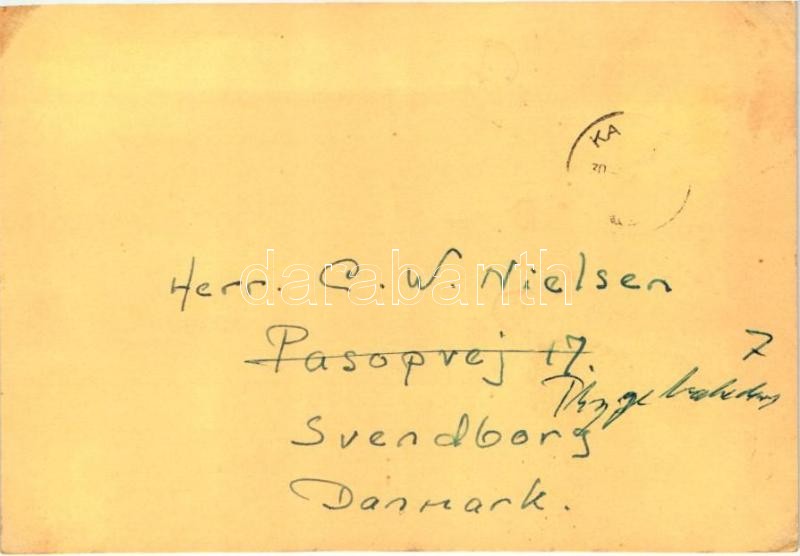 KA
Herr. C. W. Nielsen
Pasopvej 17.
7
Svendborg
Danmark.
darabanth